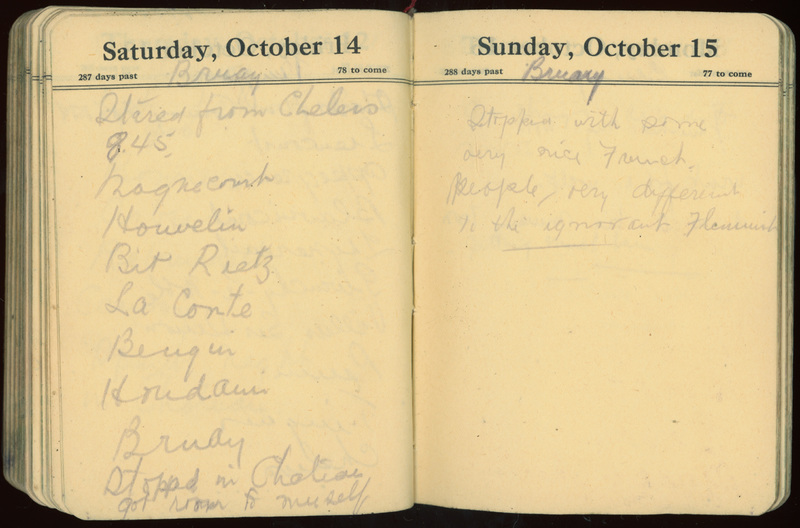 Saturday, October 14
287 days past
78 to come
Bruay
Stared from Chelers
8.45
Magnecourt
Houvelin
Bit Rietz
La Conte
Beugin
Houdain
Bruay
Stoppd in Chateau
got room to muself
Sunday, October 15
288 days past
77 to come
Bruary
Stoppd with some
very nice French
people, very different
to the ignorant Flemmish